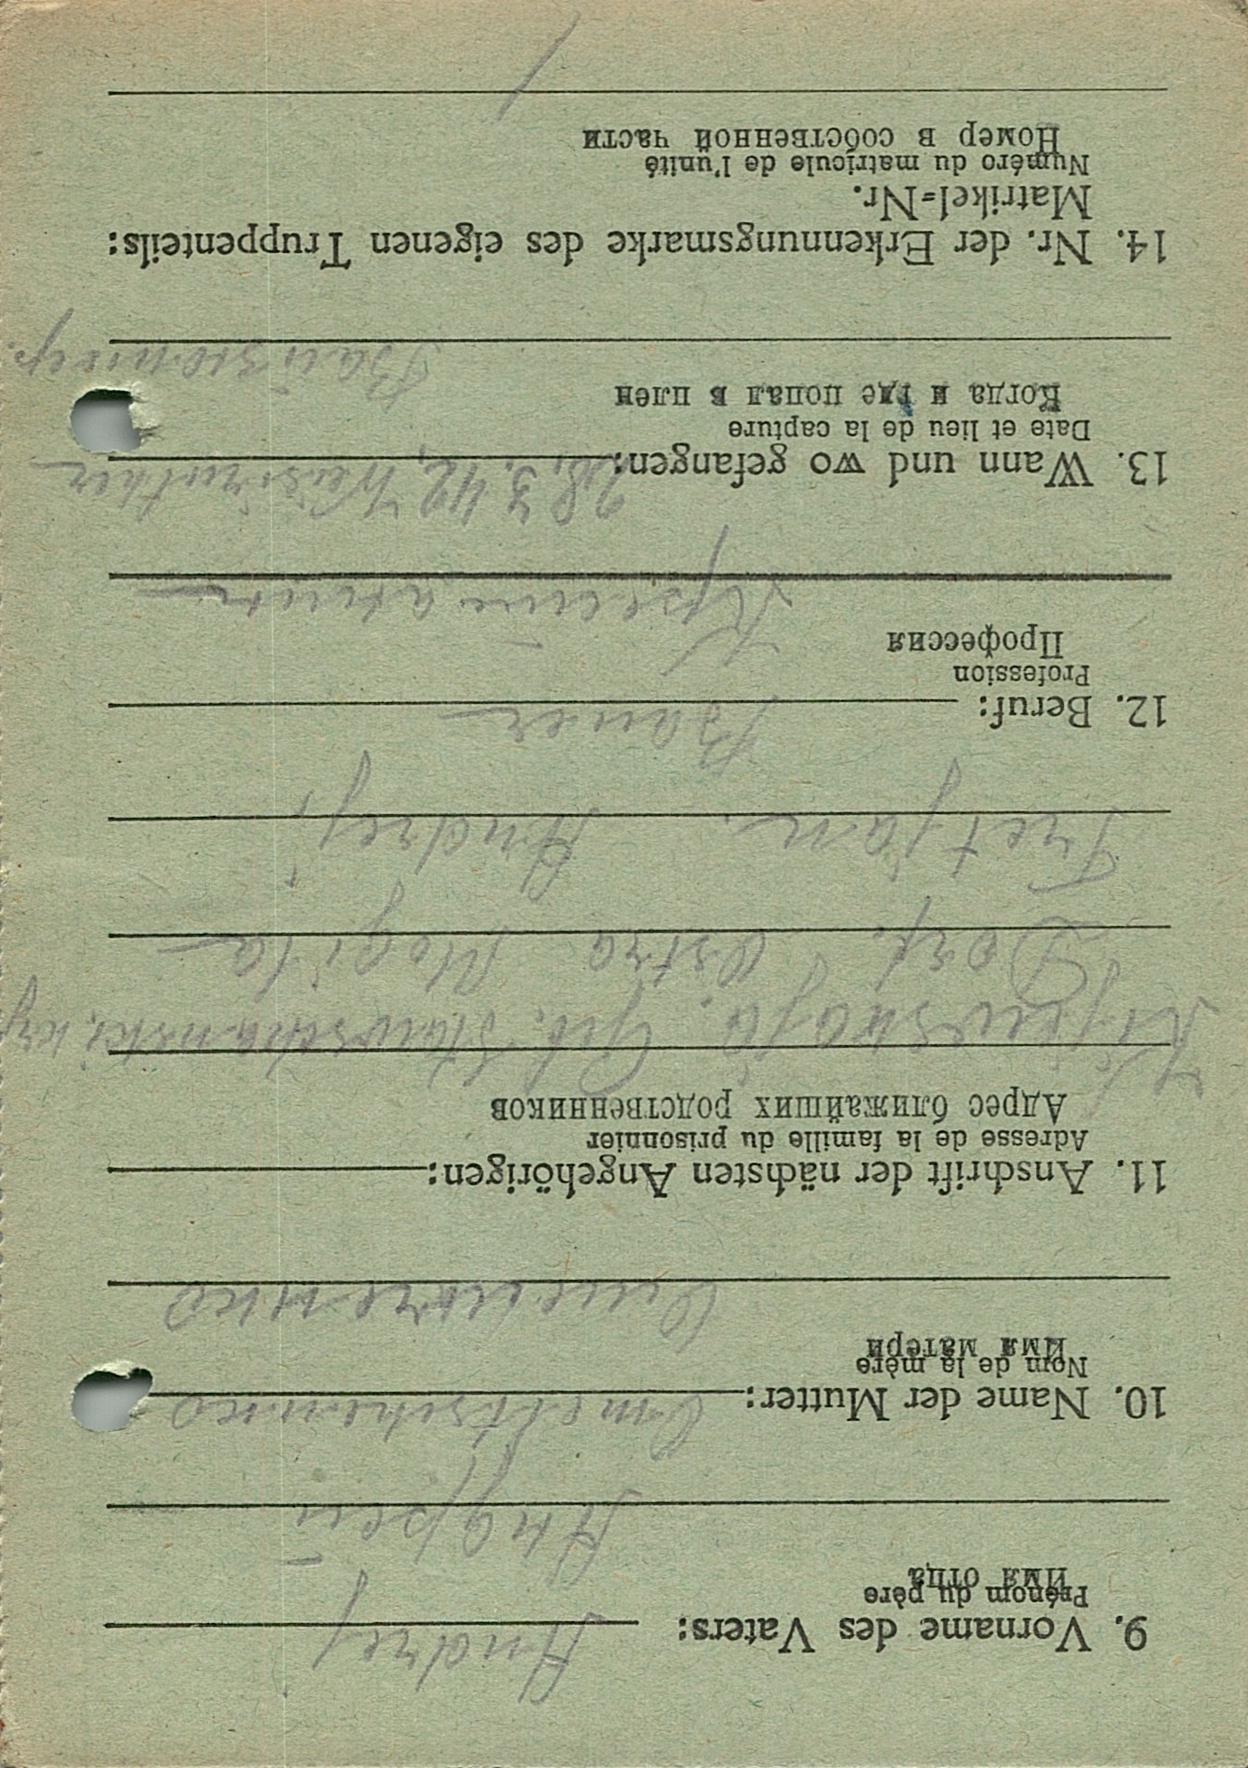 9. Vorname des Vaters: Andrej
Prénom du père
Имя отца
Андрей
10. Name der Mutter: Omeltschenko
Nom de la mère
Имя матери
Омельченко
11. Anschrift der nächsten Angehörigen:
Adresse de la famille du prisonnier
Адрес ближайших родственников
Kijewskaja Geb.
Dorf. Ostra Mogila
Tretjan. Andrej,
12. Beruf: Bauer
Profession
Профессия
13. Wann und wo gefangen: 28,3.42,
Date et lieu de la capture
Когда и где попал в плен
14. Nr. der Erkennungsmarke des eigenen Truppenteils:
Matrikel=Nr.
Numéro du matricule de l'unité
Номер в собственной части
/